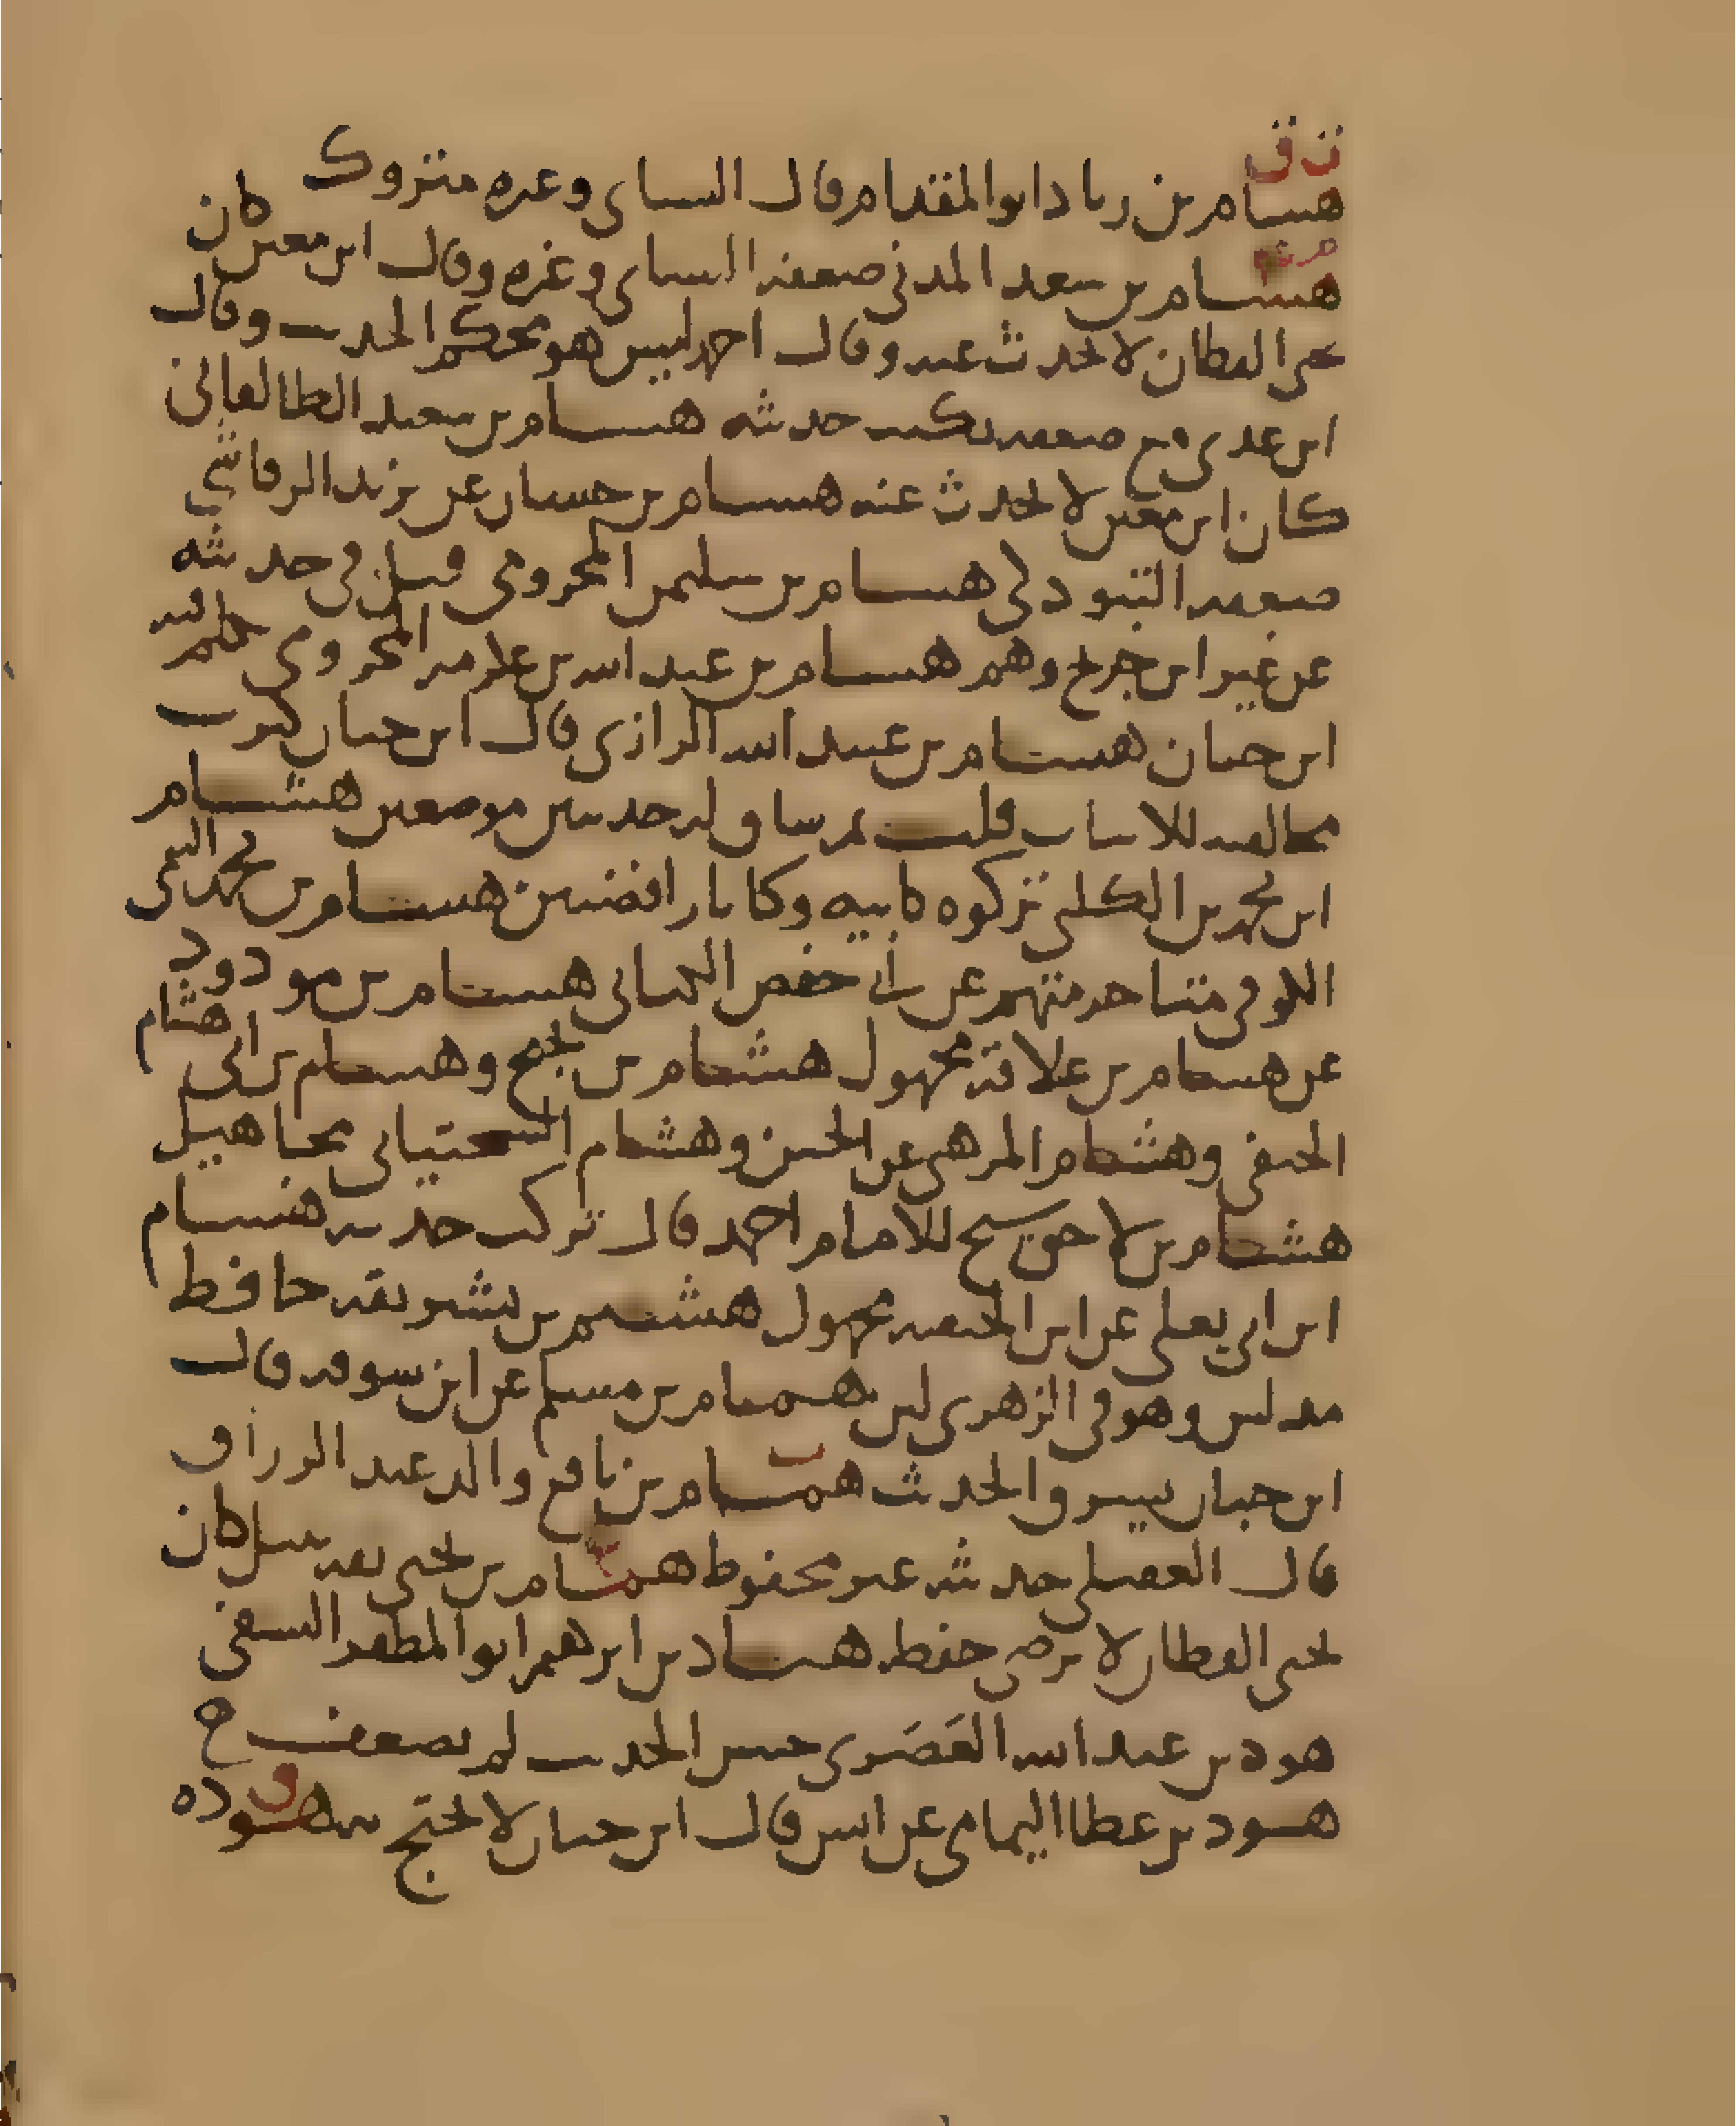 ت ق
هشام بن زياد ابو المقدام قال النساي وغيره متروك
هشام بن سعد المدني ضعفه النساي وغيره وقال ابن معين كان
يحيى القطان لا يحدث عنه وقال احمد ليس هو محكم الحديث وقال
ابن عدي مع ضعفه يكتب حديثه هشام بن سعيد الطالقاني
كان ابن معين لا يحدث عنه هشام بن حسان عن يزيد الرقاشي
ضعفه التبوذكي هشام بن سليمن المخزومي قيل في حديثه
عن غير ابن جريج وهم هشام بن عبد الله بن عكرمه المخزومي
ابن حبان هشام بن عبيد الله الرازي قال ابن حبان كثرت
مخالفته للاثبات قلت ثم ساق له حديثين موضعين هشام
ابن محمد بن الكلبي تركوه كابيه وكانا رافضيين هشام بن محمد التيمي
الكوفي متاخر متهم عن ابي حفص الكتاني هشام بن مودود
عن هشام بن علاقة مجهول هشام بن نجيح وهشام بن ابي هشام
الحنفي وهشام المرهبي عن الحسن وهشام السختياني مجاهيل
هشام بن لاحق شيخ للامام احمد قال تركت حديثه هشام
ابن ابي يعلى عن ابن الحنفيه مجهول هشيم بن بشير ثقه حافظ
مدلس وهو في الزهري لين همام بن مسلم عن ابن سوقه قال
ابن حبان يسرق الحديث همام بن نافع والد عبد الرزاق
قال العقيلي حديثه غير محفوظ همام بن يحيى ثقه نبيل كان
يحيى القطان لا يرضى حفظه هناد بن ابرهيم ابو المظفر النسفي
هود بن عبد الله العَصَري حسن الحديث لم يضعف ح
هود بن عطا اليمامي عن انس قال ابن حبان لا يحتج به هوذه